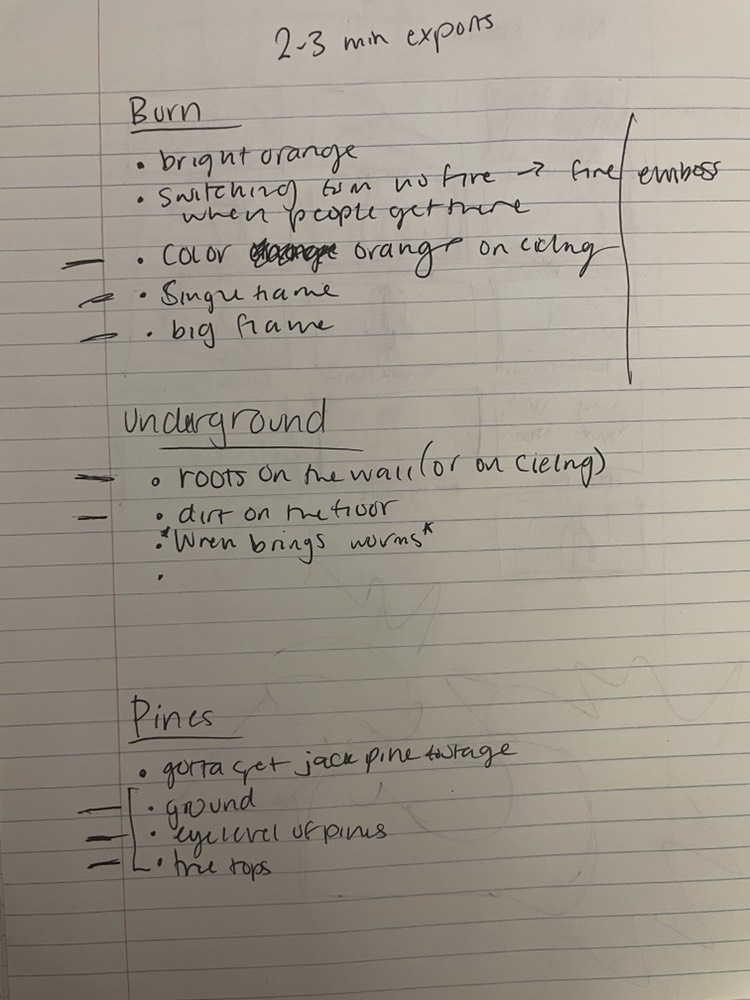 2-3 min exports
Burn
• bright orange
• Switching from no fire → fire emboss
when people get there
• Color orange on cielng
• Single flame
• big flame
Underground
• roots on the wall (or on cielng)
• dirt on the floor
•*Wren brings worms*
•
Pines
• gotta get jack pine footage
• ground
• eye level of pines
• tree tops